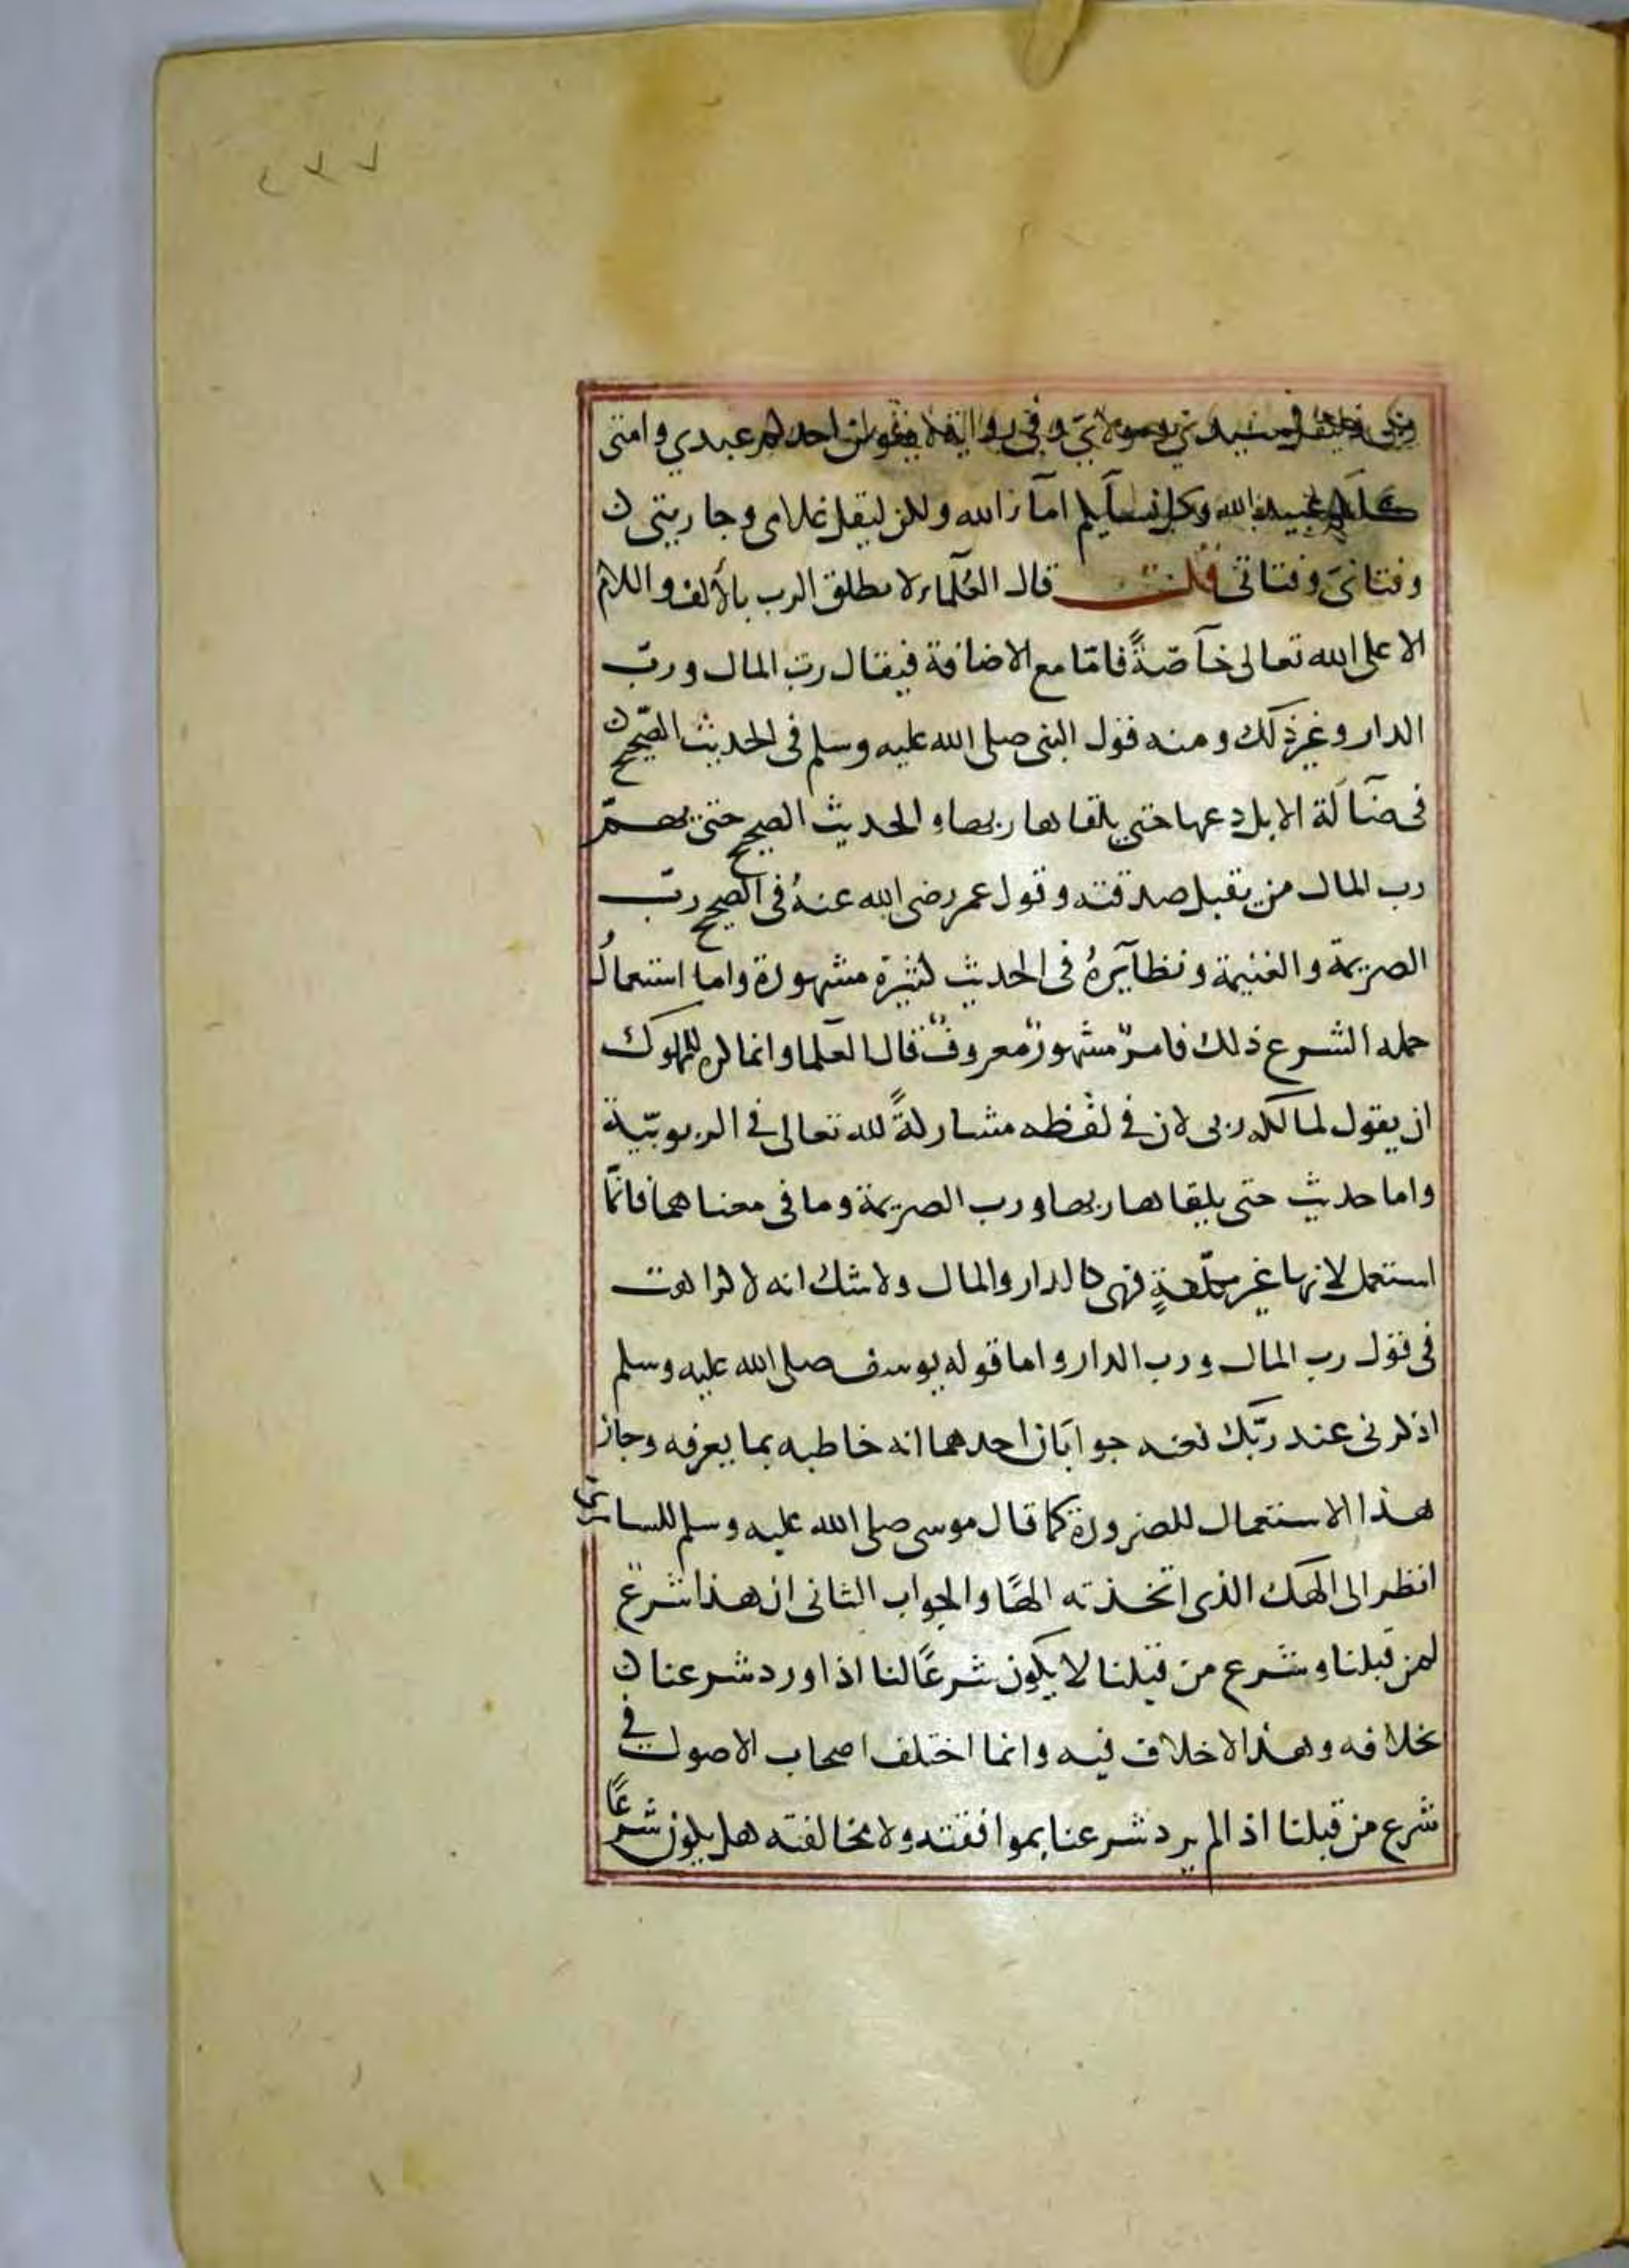 ٢٣٧
وفي رواية لا يقولن احدكم عبدي وامتى
كلكم عبيد الله وكل نسآيكم امآء الله ولكن ليقل غلامى وجاريتى
وفتاى وفتاتى قلت قال العلمآء لا يطلق الرب بالألف واللام
الا على الله تعالى خآصّةً فامّا مع الاضافة فيقال ربّ المال وربّ
الدار وغير ذلك ومنه قول النبى صلى الله عليه وسلم فى الحديث الصّحيح
فى ضآلة الابل دعها حتى يلقاها ربها و الحديث الصحيح حتى يهمّ
رب المال من يقبل صدقته وقول عمر رضى الله عنهُ فى الصحيح ربّ
الصريمة والغنيمة ونظآيرهُ فى الحديث كثيرة مشهورة واما استعمالُ
حمله الشرع ذلك فامرٌ مشهورٌ معروفٌ قال العلما وانما كره للمملوك
ان يقول لمالكه ربى لان فى لفظه مشاركةً لله تعالى فى الربوبيّة
واما حديث حتى يلقاها ربها ورب الصريمة وما فى معناهما فانّما
استعمل لانها غير مكلّفةٍ فهى كالدار والمال ولا شك انه لا كراهت
فى قول رب المال ورب الدار واما قوله يوسف صلى الله عليه وسلم
اذكرنى عند ربّك فعنه جوابان احدهما انه خاطبه بما يعرفه وجاز
هذا الاستعمال للضرورة كما قال موسى صلى الله عليه وسلم للسامرى
انظر الى الهك الذى اتخذته الهًا والجواب الثانى ان هذا شرع
لمن قبلنا وشرع من قبلنا لا يكون شرعًا لنا اذا ورد شرعنا
بخلافه وهذا لا خلاف فيه وانما اختلف اصحاب الاصول فى
شرع من قبلنا اذا لم يرد شرعنا بموافقته ولا مخالفته هل يكون شرعًا